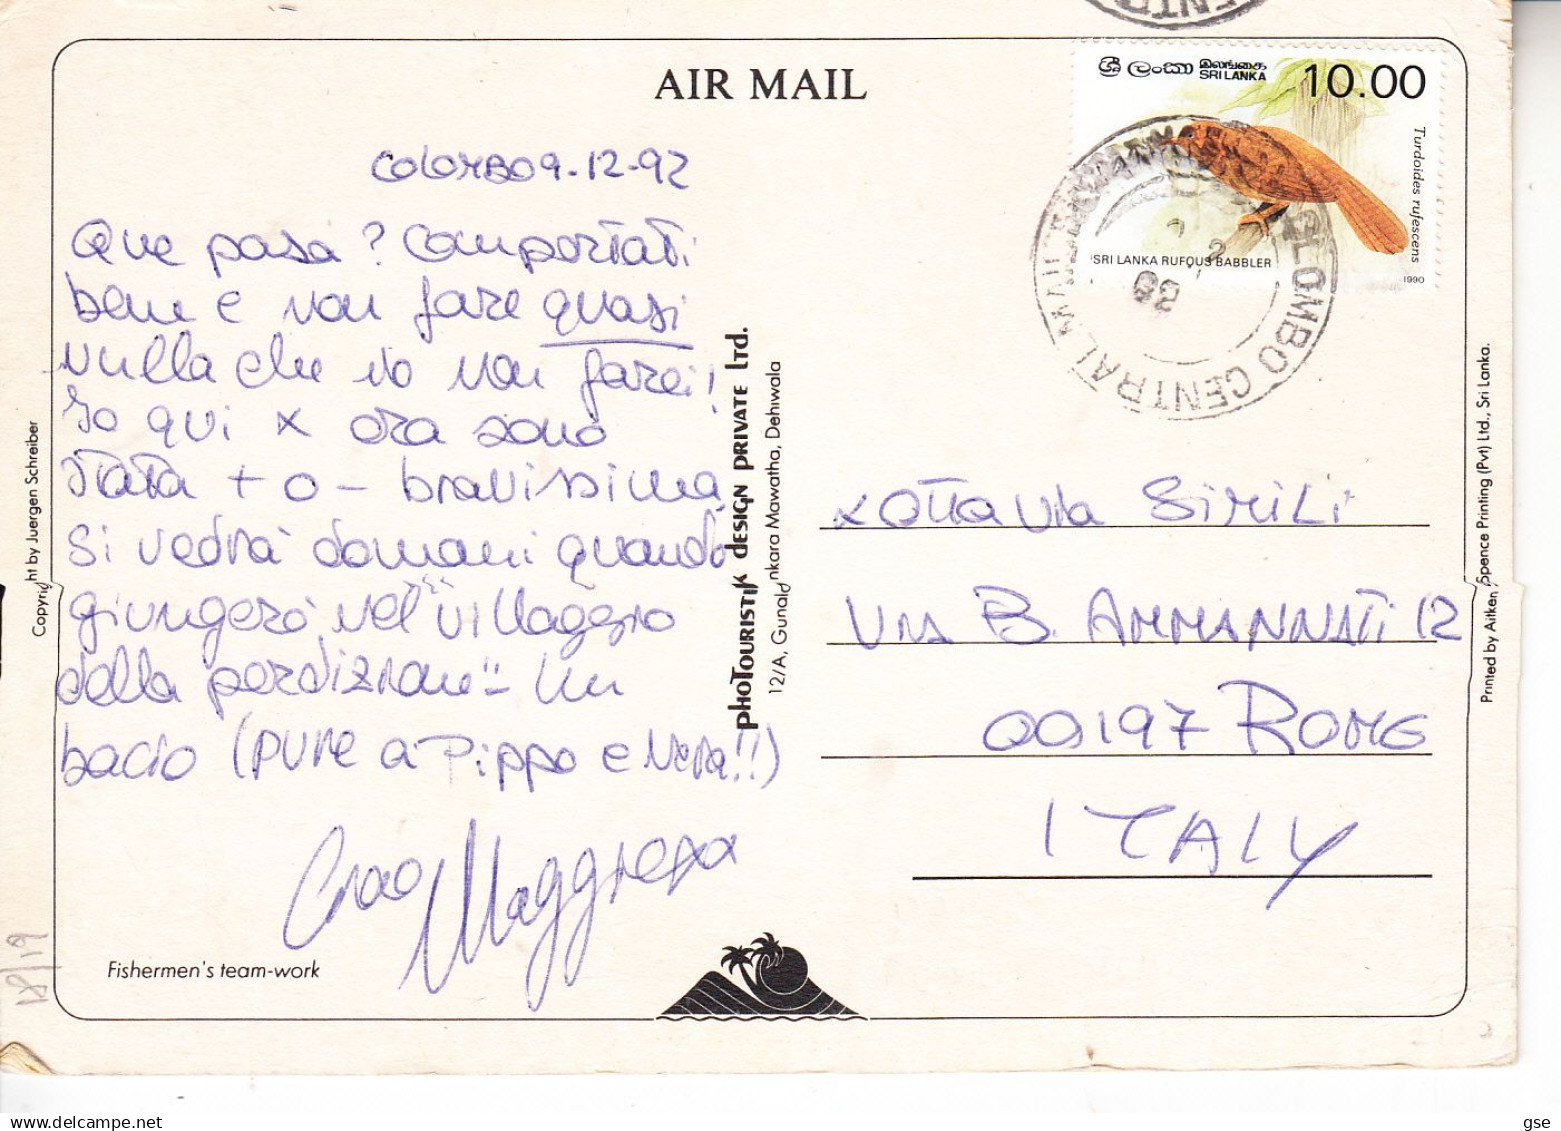 AIR MAIL
ශ්‍රී ලංකා இலங்கை
SRI LANKA
10.00
Turdoides rufescens
SRI LANKA RUFOUS BABBLER
1990
COLOMBO CENTRAL MAIL
92
COLOMBO 9-12-92
Que pasa? Comportati
bene e non fare quasi
nulla che io non farei!
Io qui x ora sono
stata + o - bravissima
si vedrà domani quando
giungerò nel "villaggio
della perdizione" - Un
bacio (pure a Pippo e Nena!!)
Ciao
x Ottavia Simili
Via B. AMMANNATI 12
00197 ROME
ITALY
Fishermen's team-work
Copyright by Juergen Schreiber
phoTourisTik design private Ltd.
nkara Mawatha, Dehiwala
12/A,
Printed by Aitken Spence Printing (Pvt) Ltd., Sri Lanka.
18/19
gse